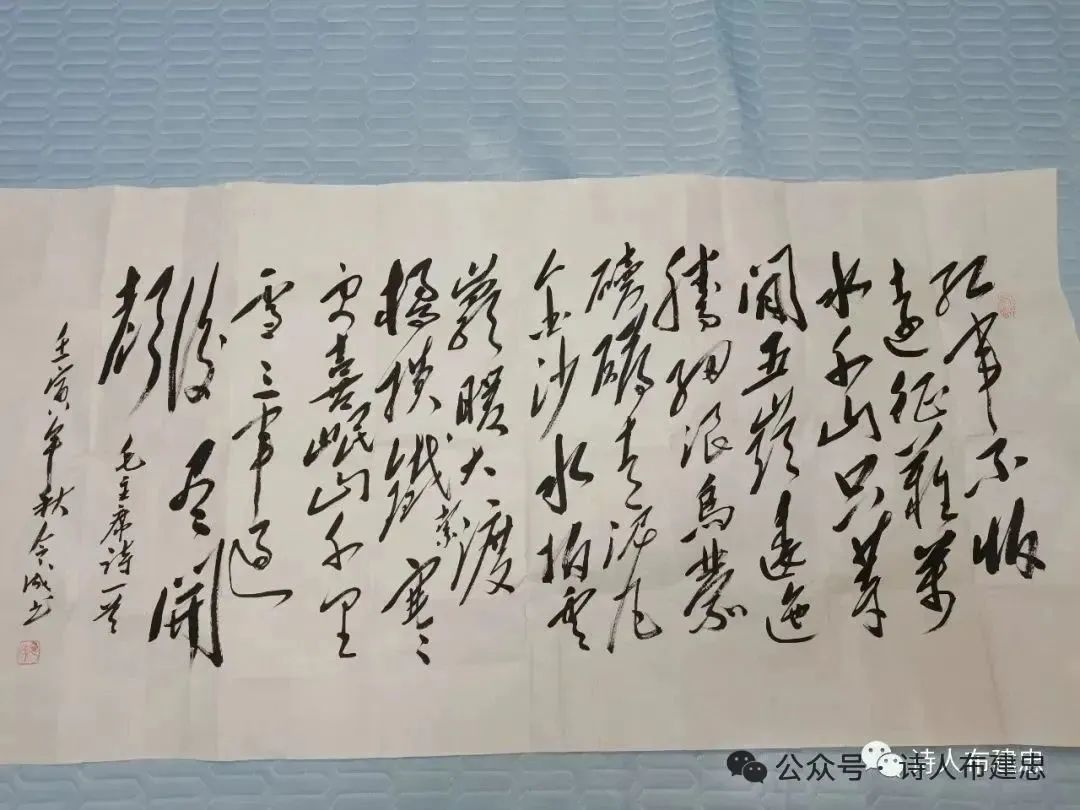 红军不怕
远征難萬
水千山只等
闲五嶺逶迤
腾细浪烏蒙
磅礴走泥丸
金沙水拍雲
巖暖大渡
橋横铁索寒
更喜岷山千里
雪三军过
後尽開
颜
毛主席诗一首
壬寅年秋
公众号 · 诗人布建忠
诗人布建忠